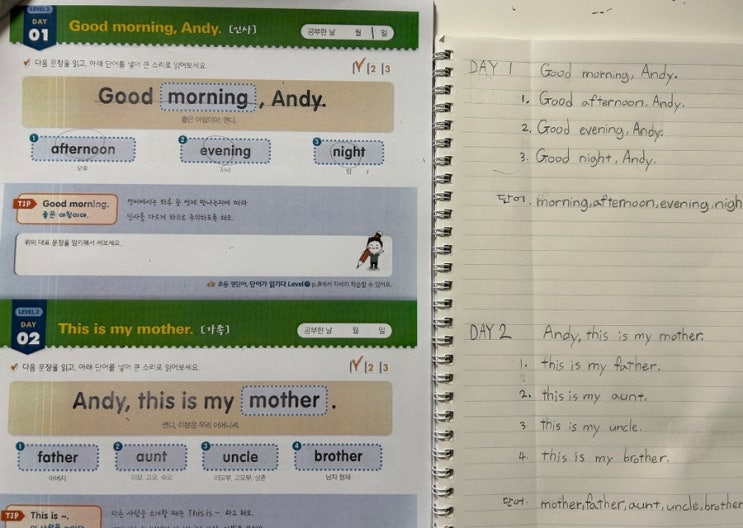 LEVEL 2
DAY
01
Good morning, Andy. [인사]
공부한 날 월 일
✓ 다음 문장을 읽고, 아래 단어를 넣어 큰 소리로 읽어보세요.
1 2 3
Good morning, Andy.
좋은 아침이야, 앤디.
1 afternoon
오후
2 evening
저녁
3 night
밤
TIP Good morning.
좋은 아침이야.
영어에서는 하루 중 언제 만나는지에 따라
인사를 다르게 하므로 주의하도록 해요.
위의 대표 문장을 암기해서 써보세요.
초등 영단어, 단어가 읽기다 Level 2 p.8에서 자세히 학습할 수 있어요.
LEVEL 2
DAY
02
This is my mother. [가족]
공부한 날 월 일
✓ 다음 문장을 읽고, 아래 단어를 넣어 큰 소리로 읽어보세요.
1 2 3
Andy, this is my mother.
앤디, 이분은 우리 어머니셔.
1 father
아버지
2 aunt
이모, 고모, 숙모
3 uncle
이모부, 고모부, 삼촌
4 brother
남자 형제
TIP This is ~.
다른 사람을 소개할 때는 This is ~. 라고 해요.
DAY 1 Good morning, Andy.
1. Good afternoon, Andy.
2. Good evening, Andy.
3. Good night, Andy.
단어. morning, afternoon, evening, nigh
DAY 2 Andy, this is my mother.
1. this is my father.
2. this is my aunt.
3 this is my uncle.
4. this is my brother.
단어. mother, father, aunt, uncle, brother